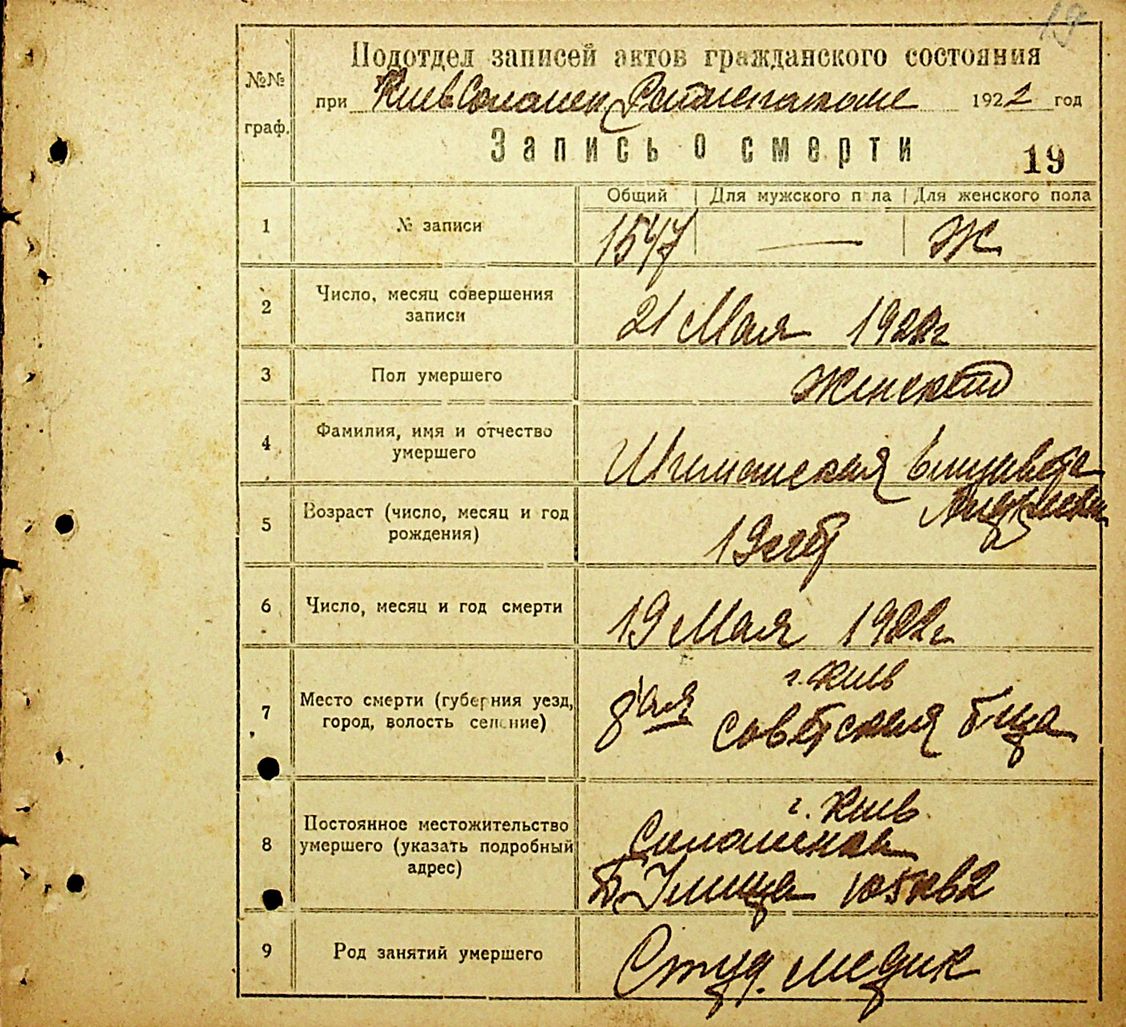 19
№№ граф.
Подотдел записей актов гражданского состояния
при Киев Соломен 1922 год
Запись о смерти 19
Общий Для мужского п ла Для женского пола
1 № записи 1547 — Ж
2 Число, месяц совершения
записи
21 Мая 1922г
3 Пол умершего Женский
4 Фамилия, имя и отчество
умершего
Шиманская Елизавета
Андреевн
5 Возраст (число, месяц и год
рождения)
19 лет
6 Число, месяц и год смерти 19 Мая 1922г
7 Место смерти (губерния уезд,
город, волость селение)
г. Киев
8'ая Советская б-ца
8 Постоянное местожительство
умершего (указать подробный
адрес)
г. Киев
Соломенка
105 кв 2
9 Род занятий умершего Студ. медик